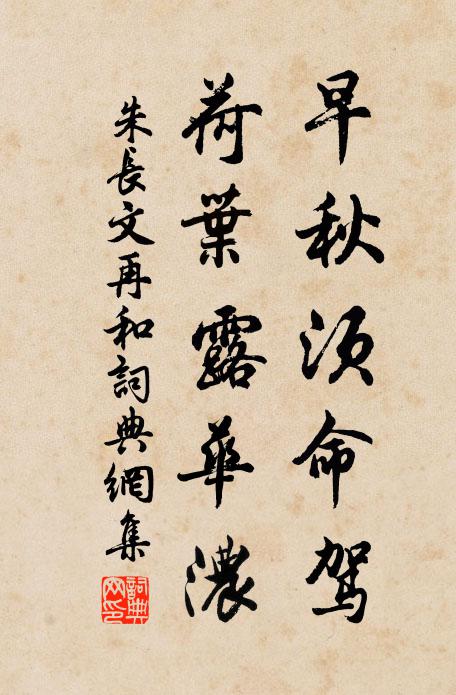 早秋須命駕
荷葉露華濃
朱長文再和詞典網集
詞典
网印